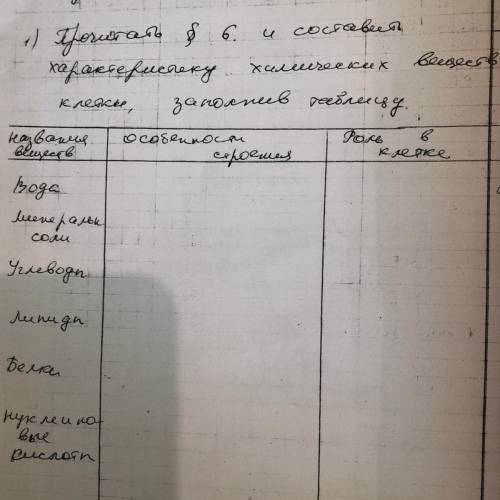 1) Прочитать § 6. и составить
характеристику химических веществ
клетки, заполнив таблицу.
названия веществ
особенности строения
Роль в клетке
Вода
минеральн
соли
Углеводы
Липиды
Белки
нуклеино-
вые
кислоты